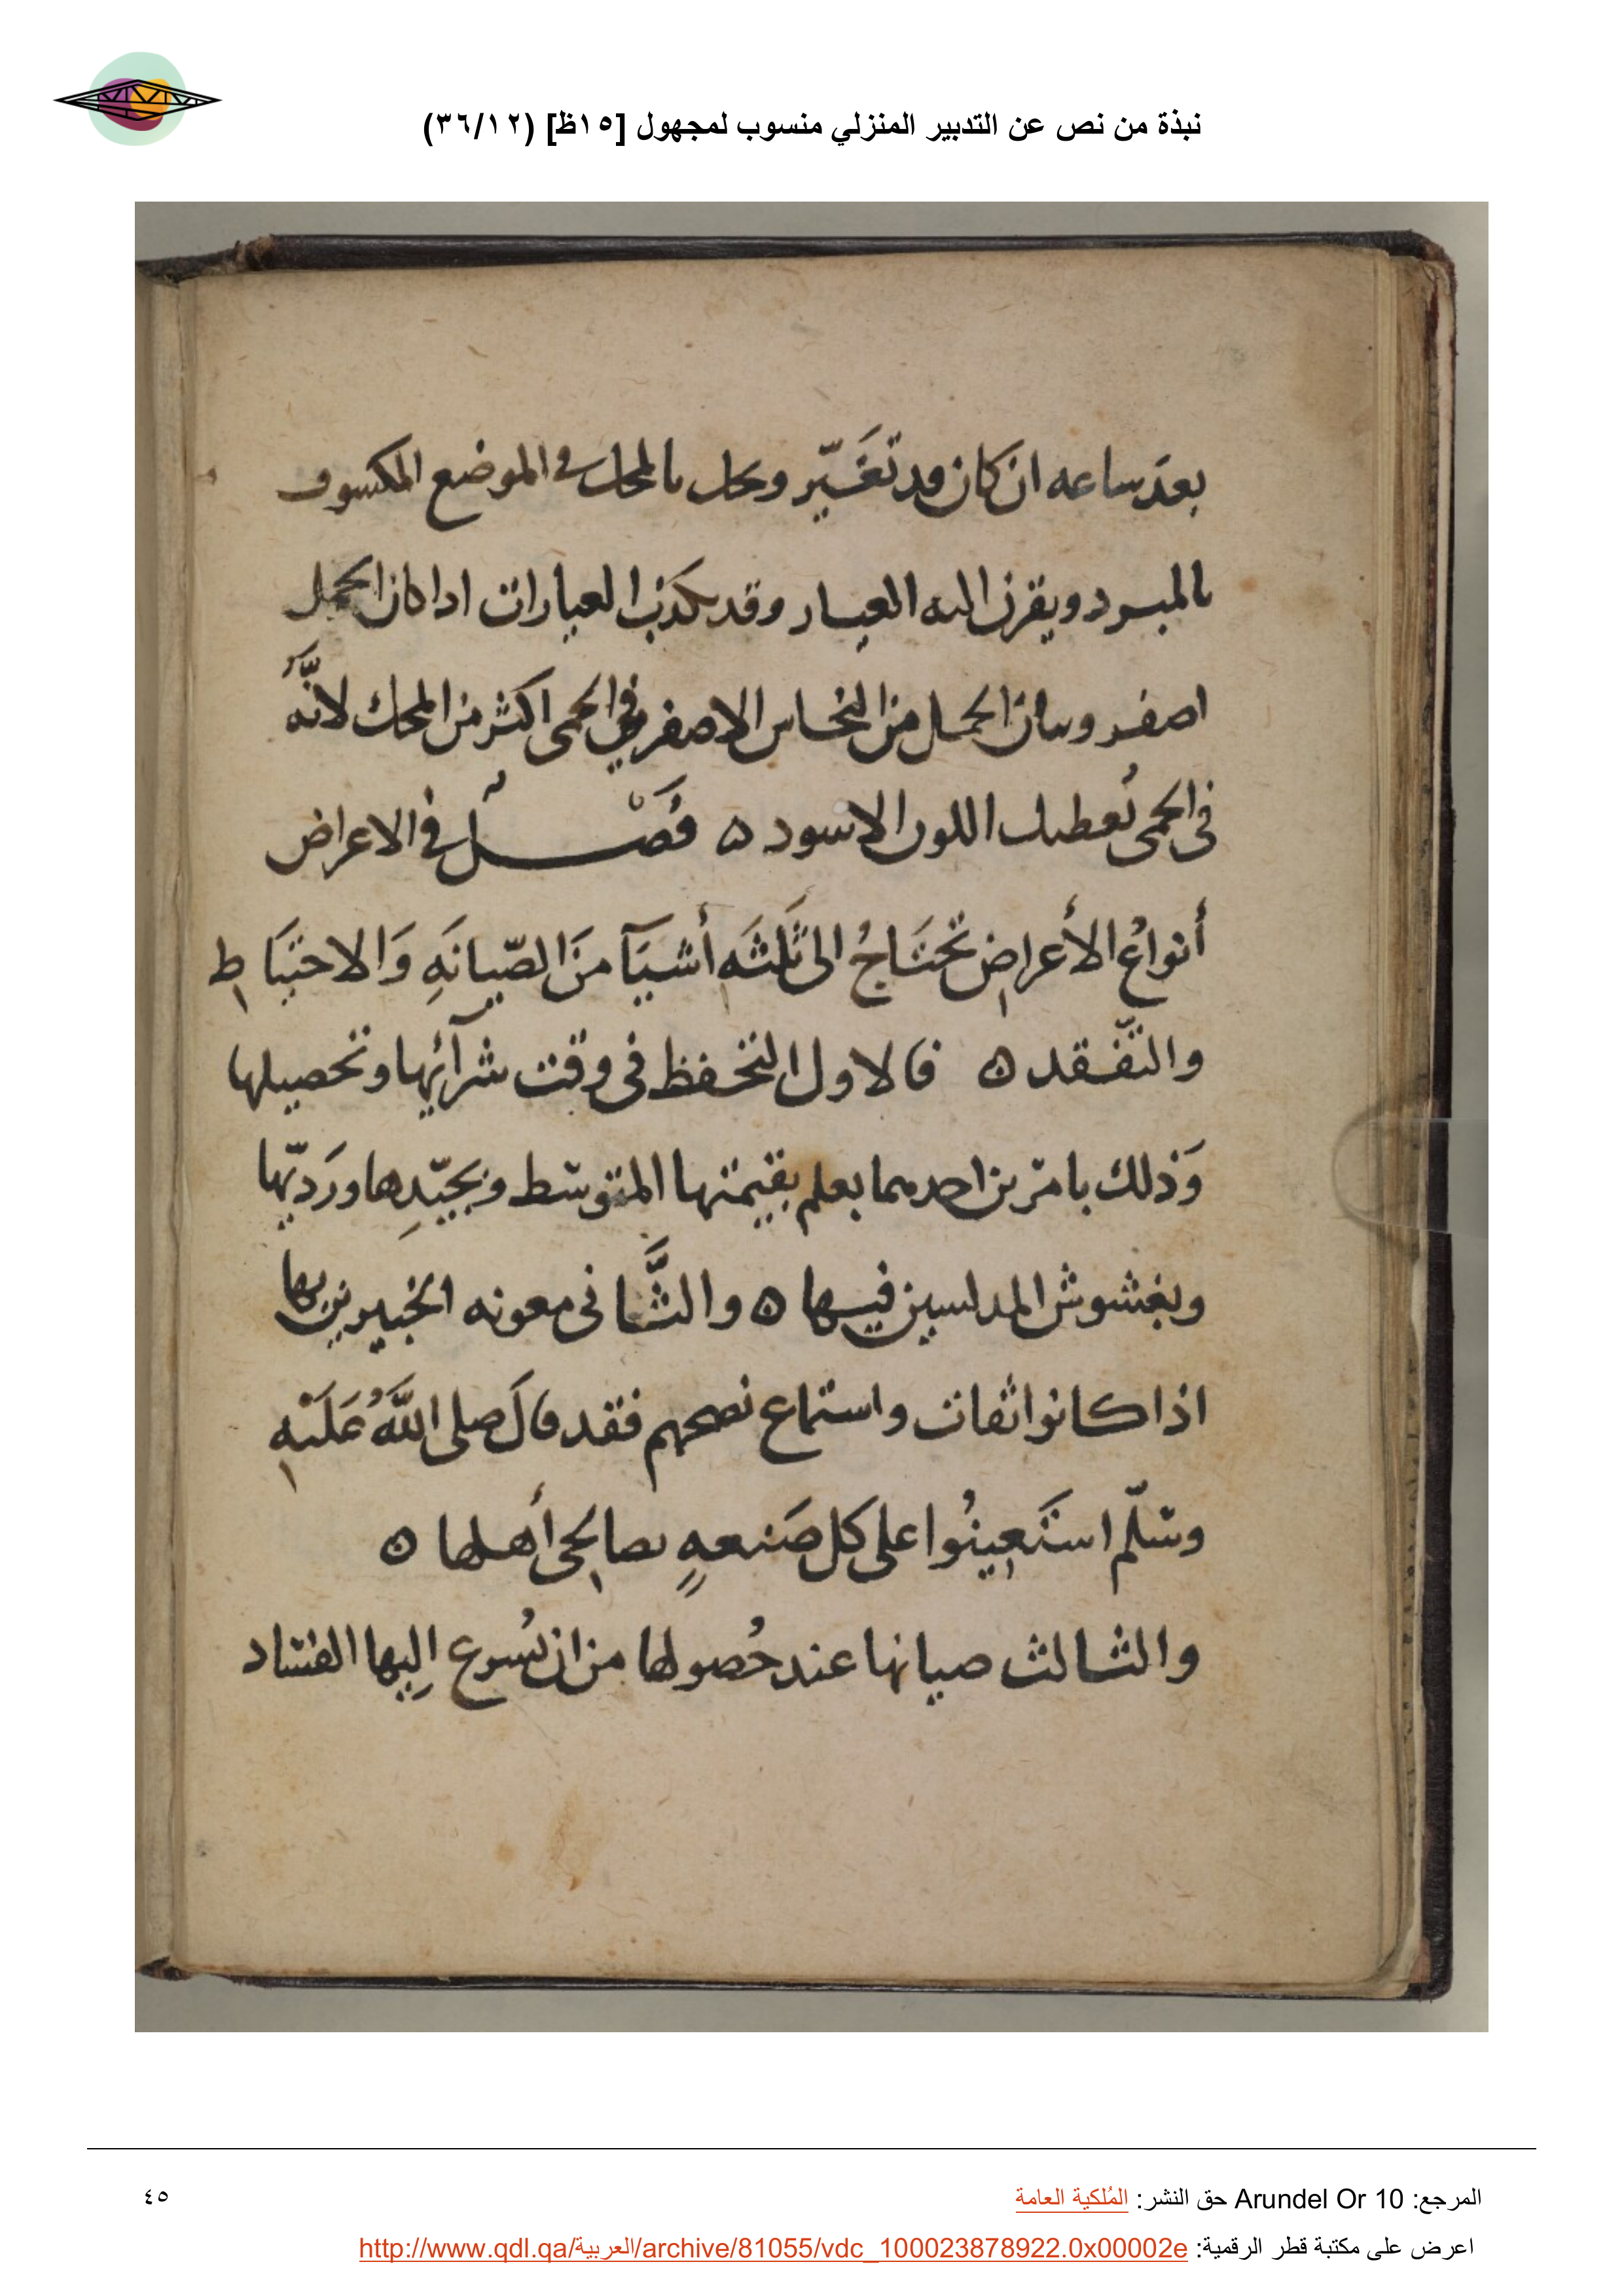 نبذة من نص عن التدبير المنزلي منسوب لمجهول [١٥ظ] (٣٦/١٢)
بعدَ ساعه ان كان قد تغَيّر ويحك بالمحك في الموضع المكسوف
بالمبرد ويقرن اليه العيار وقد يكذب العيارات اذا كان الحمل
اصفر وبيان الحمل من النحاس الاصفر في الحمى اكثر من المحك لانّه
في الحمى يُعطيك اللون الاسود ه فَصْل في الاعراض
أنواعُ الأعراضِ تحتَاجُ الى ثَلثَه أشيَآ منَ الصّيانَهِ وَالاحتيَاطِ
والتفّقد ه فالاول التحفظ في وقت شرآئِها وتحصيلها
وَذلك بامرَين احدهما بعلم بقيمتها المتوسّط وبجيّدِها ورَديّها
وبغشوش المدلسين فيها ه والثَّاني معونه الخبيرين بها
اذا كانوا ثقات واستماع نصحهم فقد قالَ صلى اللَّهُ عَلَيْهِ
وسَلّم استَعِينُوا على كل صَنعهٍ بصالِحى أهلها ه
والثالث صيانها عند حُصولها من ان يُسرع إليها الفساد
المرجع: Arundel Or 10 حق النشر: المُلكية العامة
٤٥
اعرض على مكتبة قطر الرقمية: http://www.qdl.qa/العربية/archive/81055/vdc_100023878922.0x00002e